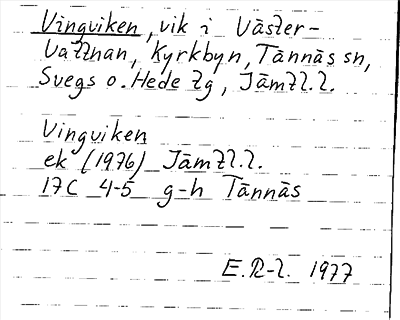 Vingviken, vik i Väster-
Vattnan, Kyrkbyn, Tännäs sn,
Svegs o. Hede tg, Jämtl.l.
Vingviken
ek (1976) Jämtl.l.
17C 4-5 g-h Tännäs
E.R-l. 1977